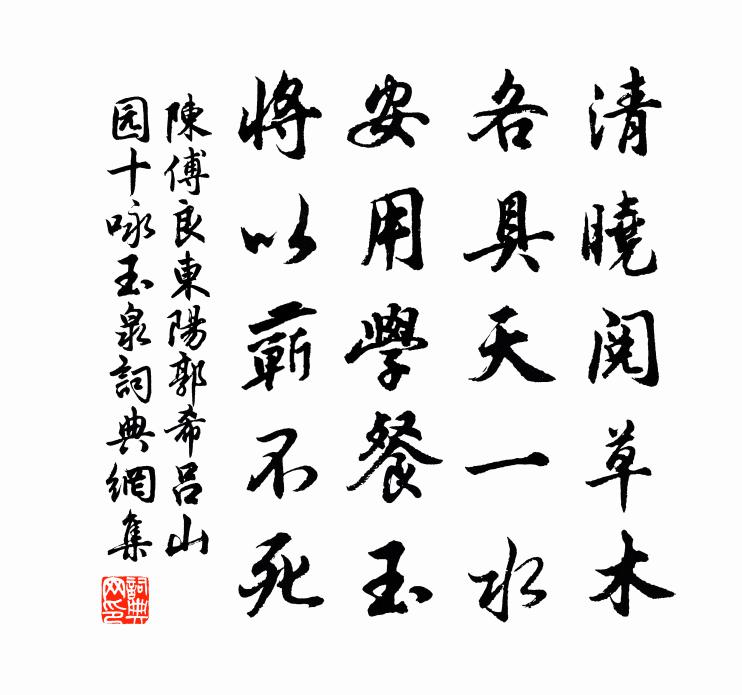 清曉閱草木
各具天一水
安用學餐玉
將以蘄不死
陳傅良東陽郭希呂山
园十咏玉泉詞典網集
詞典網印